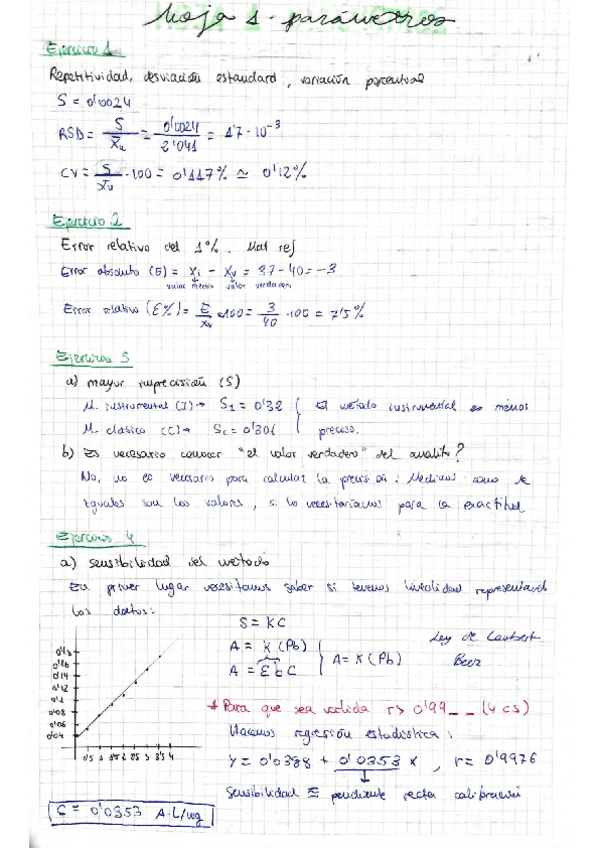 Hoja 1 - parámetros
Ejercicio 1
Repetitividad, desviación estandard, variación porcentual
S = 0'0024
RSD = S/X̄u = 0'0024/2'041 = 1'7 · 10⁻³
CV = S/X̄u · 100 = 0'117% ≃ 0'12%
Ejercicio 2
Error relativo del 1%. Mat ref
Error absoluto (E) = Xi - Xv = 37 - 40 = -3
valor medio valor verdadero
Error relativo (E%) = E/Xv · 100 = 3/40 · 100 = 7'5%
Ejercicio 3
a) mayor imprecisión (S)
M. instrumental (I) → S1 = 0'32 El método instrumental es menos
M. clásico (C) → Sc = 0'301 preciso.
b) Es necesario conocer "el valor verdadero" del analito?
No, no es necesario para calcular la precisión. Medimos como de
iguales son los valores, si lo necesitaríamos para la exactitud
Ejercicio 4
a) sensibilidad del método
En primer lugar necesitamos saber si tenemos linealidad representando
los datos:
S = KC
A = K (Pb)
A = E b C
A = K (Pb)
Ley de Lambert
Beer
* Para que sea válida r > 0'99_ _ (4 cs)
Hacemos regresión estadística:
Y = 0'0388 + 0'0353 x, r = 0'9976
Sensibilidad ≅ pendiente recta calibración
0'16
0'14
0'12
0'1
0'08
0'06
0'04
C = 0'0353 A·L/mg